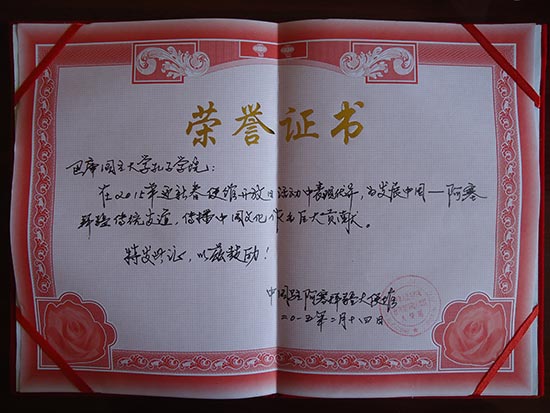 荣誉证书
巴库国立大学孔子学院：
在2015年迎新春使馆开放日活动中表现优异，为发展中国—阿塞
拜疆传统友谊，传播中国文化作出巨大贡献。
特发此证，以兹鼓励！
中国驻阿塞拜疆大使馆
二〇一五年二月十四日